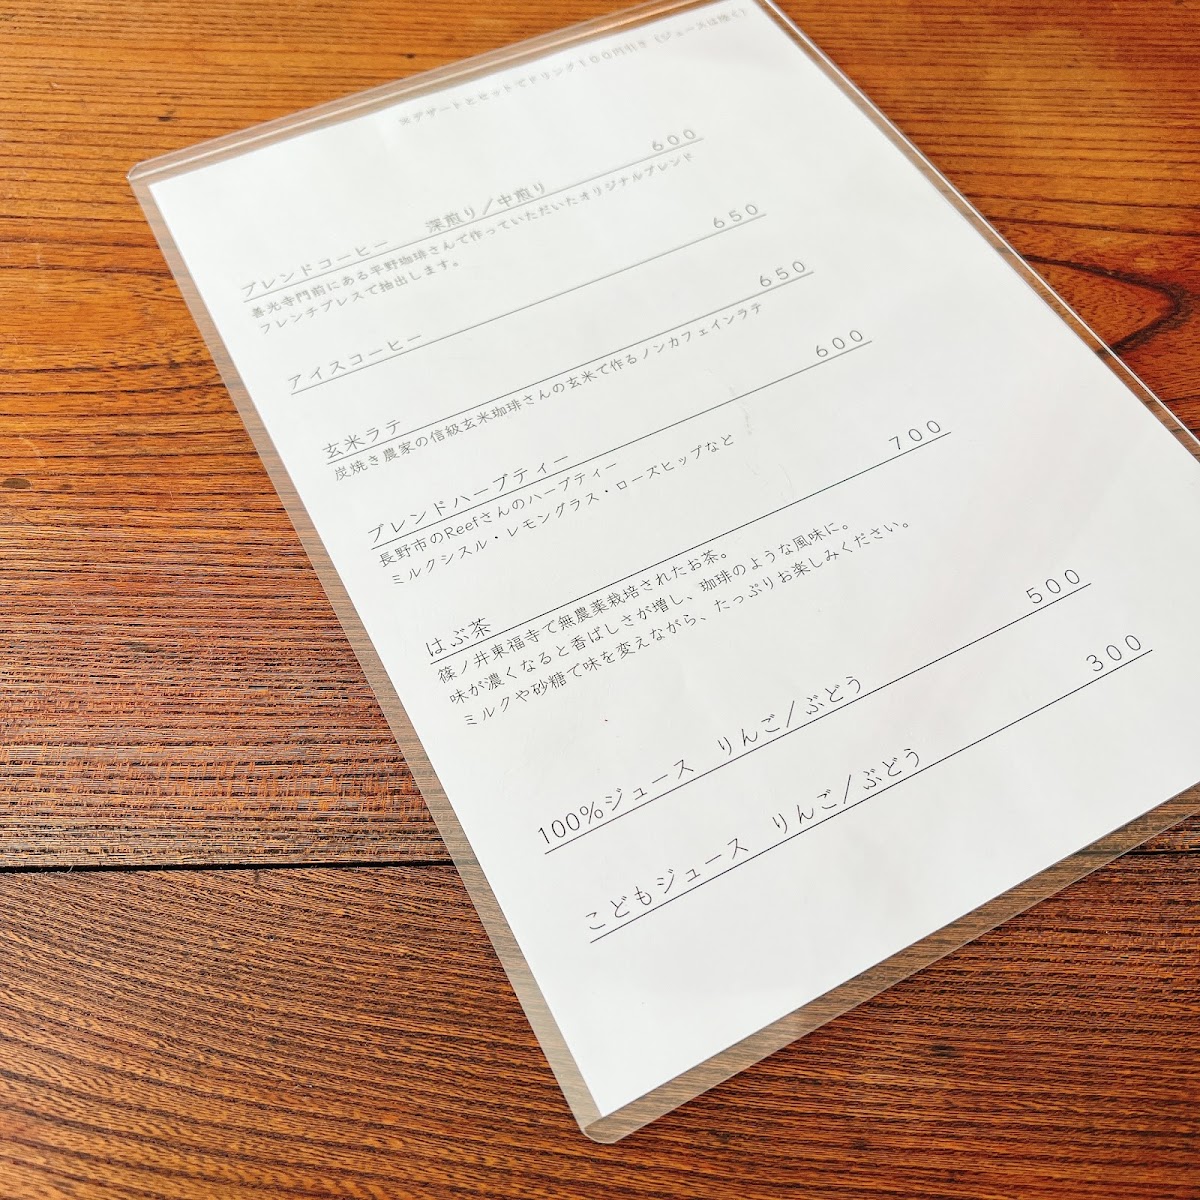 ※デザートとセットでドリンク100円引き（ジュースは除く）
ブレンドコーヒー　深煎り／中煎り　600
善光寺門前にある平野珈琲さんで作っていただいたオリジナルブレンド
フレンチプレスで抽出します。
アイスコーヒー　650
玄米ラテ　650
炭焼き農家の信級玄米珈琲さんの玄米で作るノンカフェインラテ
ブレンドハーブティー　600
長野市のReefさんのハーブティー
ミルクシスル・レモングラス・ローズヒップなど
はぶ茶　700
篠ノ井東福寺で無農薬栽培されたお茶。
味が濃くなると香ばしさが増し、珈琲のような風味に。
ミルクや砂糖で味を変えながら、たっぷりお楽しみください。
100%ジュース　りんご/ぶどう　500
こどもジュース　りんご/ぶどう　300